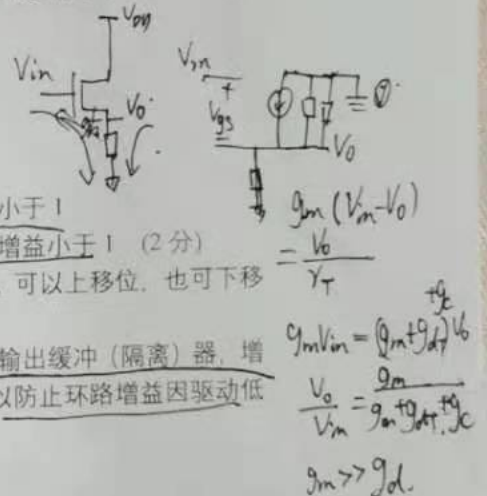 VDD
Vin
Vo
Vin
+
Vgs
Vo
小于 1
增益小于 1 （2 分）
可以上移位，也可下移
输出缓冲（隔离）器，增
以防止环路增益因驱动低
gm (Vin-Vo)
= Vo / rT
gmVin = (gm+gdT+gc) Vo
Vo / Vin = gm / gm+gdT+gc
gm >> gd.